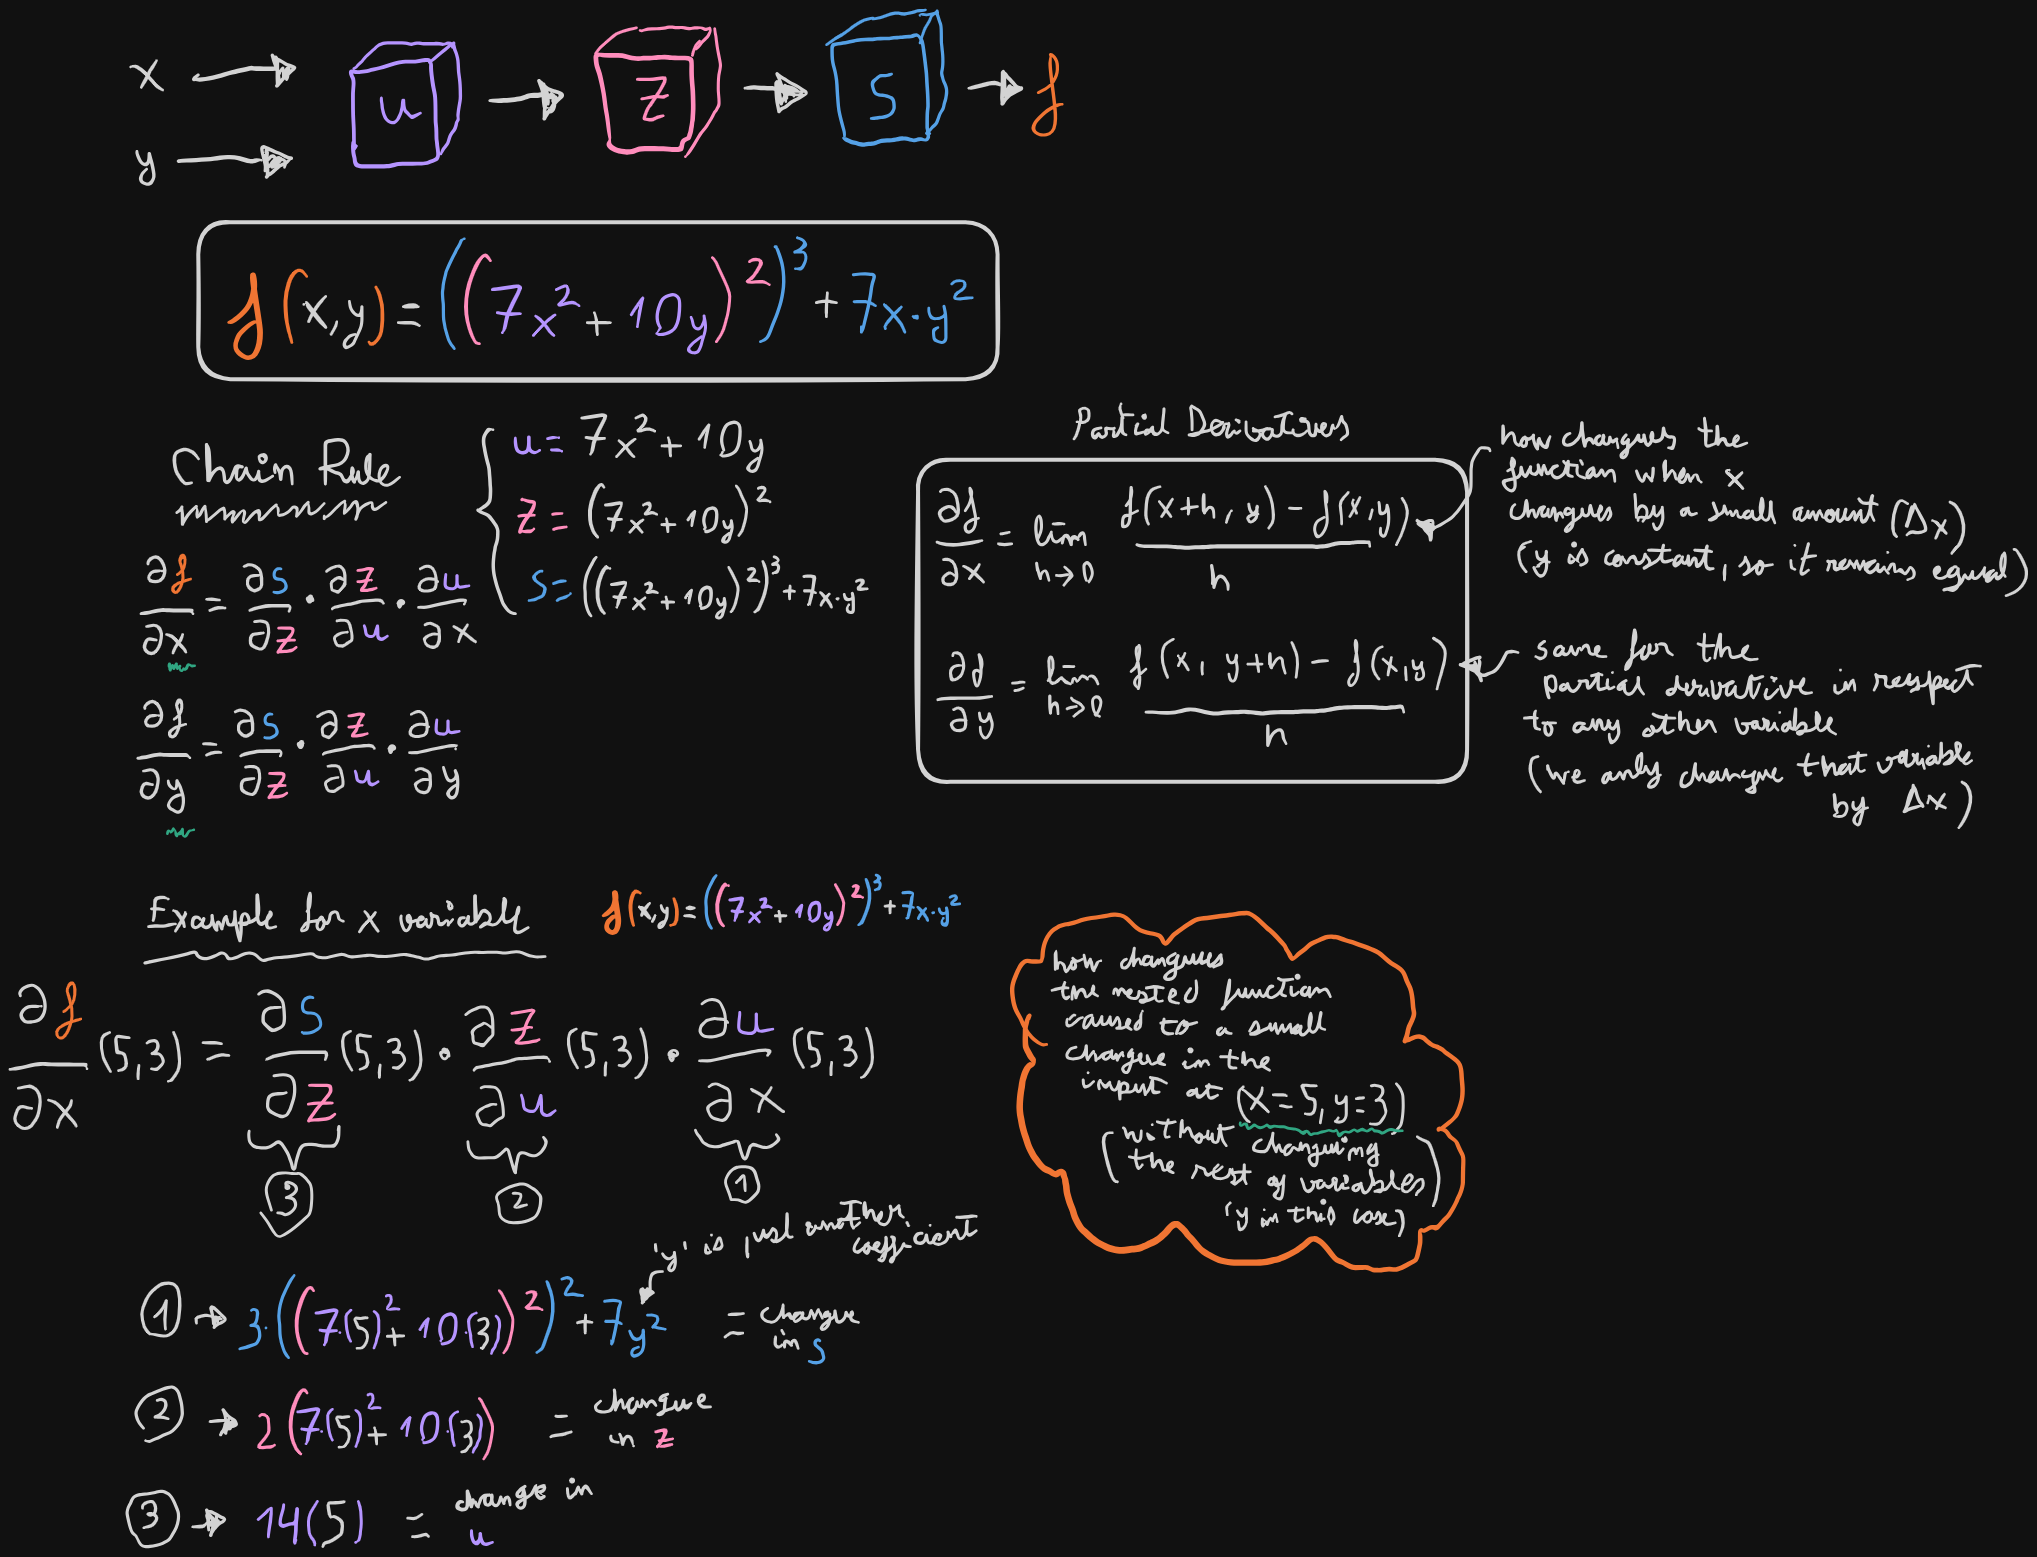 x → u → z → s → f
y →
f(x,y) = ((7x²+10y)²)³ + 7x·y²
Chain Rule
u = 7x²+10y
z = (7x²+10y)²
s = ((7x²+10y)²)³+7x·y²
∂f/∂x = ∂s/∂z · ∂z/∂u · ∂u/∂x
∂f/∂y = ∂s/∂z · ∂z/∂u · ∂u/∂y
Partial Derivatives
∂f/∂x = lim h→0 (f(x+h, y) - f(x,y))/h
∂f/∂y = lim h→0 (f(x, y+h) - f(x,y))/h
how changues the
function when x
changues by a small amount (Δx)
(y is constant, so it remains equal)
same for the
partial derivative in respect
to any other variable
(we only changue that variable
by Δx)
Example for x variable
f(x,y) = ((7x²+10y)²)³+7x·y²
∂f/∂x (5,3) = ∂s/∂z (5,3) · ∂z/∂u (5,3) · ∂u/∂x (5,3)
3 2 1
how changues
the nested function
caused to a small
changue in the
input at (x=5, y=3)
(without changuing
the rest of variables)
(y in this case)
'y' is just another
coefficient
1 → 3·((7·(5)²+10·(3))²)² + 7y² = changue
in s
2 → 2(7·(5)²+10·(3)) = changue
in z
3 → 14(5) = change in
u